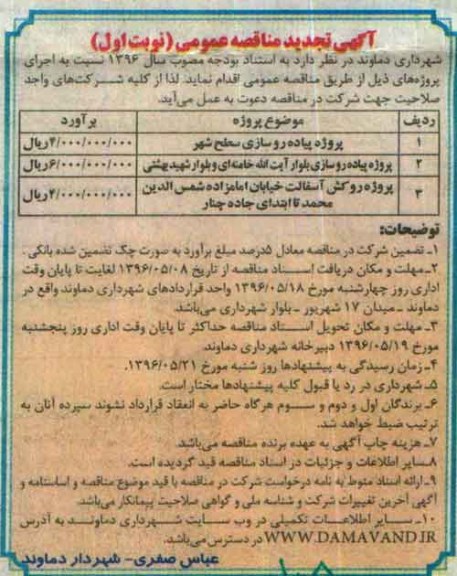 آگهی تجدید مناقصه عمومی (نوبت اول)
شهرداری دماوند در نظر دارد به استناد بودجه مصوب سال ۱۳۹۶ نسبت به اجرای
پروژه‌های ذیل از طریق مناقصه عمومی اقدام نماید. لذا از کلیه شرکت‌های واجد
صلاحیت جهت شرکت در مناقصه دعوت به عمل می‌آید.
ردیف موضوع پروژه برآورد
۱ پروژه پیاده رو سازی سطح شهر ۴/۰۰۰/۰۰۰/۰۰۰ریال
۲ پروژه پیاده رو سازی بلوار آیت الله خامنه‌ای و بلوار شهید بهشتی ۶/۰۰۰/۰۰۰/۰۰۰ریال
۳ پروژه روکش آسفالت خیابان امامزاده شمس الدین ۴/۰۰۰/۰۰۰/۰۰۰ریال
محمد تا ابتدای جاده چنار
توضیحات:
۱ـ تضمین شرکت در مناقصه معادل ۵درصد مبلغ برآورد به صورت چک تضمین شده بانکی.
۲ـ مهلت و مکان دریافت اسناد مناقصه از تاریخ ۱۳۹۶/۰۵/۰۸ لغایت تا پایان وقت
اداری روز چهارشنبه مورخ ۱۳۹۶/۰۵/۱۸ واحد قراردادهای شهرداری دماوند واقع در
دماوند ـ میدان ۱۷ شهریور ـ بلوار شهرداری می‌باشد.
۳ـ مهلت و مکان تحویل اسناد مناقصه حداکثر تا پایان وقت اداری روز پنجشنبه
مورخ ۱۳۹۶/۰۵/۱۹ دبیرخانه شهرداری دماوند.
۴ـ زمان رسیدگی به پیشنهادها روز شنبه مورخ ۱۳۹۶/۰۵/۲۱.
۵ـ شهرداری در رد یا قبول کلیه پیشنهادها مختار است.
۶ـ برندگان اول و دوم و سوم هرگاه حاضر به انعقاد قرارداد نشوند سپرده آنان به
ترتیب ضبط خواهد شد.
۷ـ هزینه چاپ آگهی به عهده برنده مناقصه می‌باشد.
۸ـ سایر اطلاعات و جزئیات در اسناد مناقصه قید گردیده است.
۹ـ ارائه اسناد منوط به نامه درخواست شرکت در مناقصه با قید موضوع مناقصه و اساسنامه و
آگهی آخرین تغییرات شرکت و شناسه ملی و گواهی صلاحیت پیمانکار می‌باشد.
۱۰ـ سایر اطلاعات تکمیلی در وب سایت شهرداری دماوند به آدرس
WWW.DAMAVAND.IR در دسترس می‌باشد.
عباس صفری- شهردار دماوند